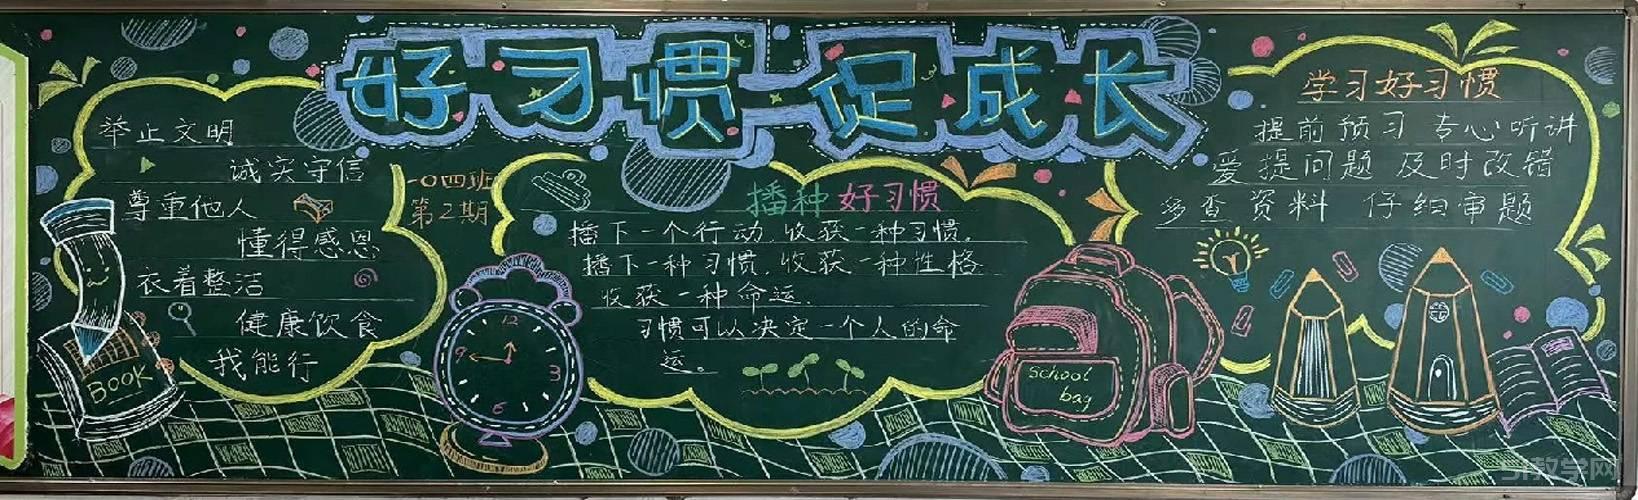 好习惯 促成长
举止文明
诚实守信
尊重他人
懂得感恩
衣着整洁
健康饮食
我能行
BOOK
一〇四班
第2期
12
9
3
6
播种好习惯
播下一个行动,收获一种习惯。
播下一种习惯,收获一种性格
收获一种命运.
习惯可以决定一个人的命
运。
School
bag
学习好习惯
提前预习 专心听讲
爱提问题 及时改错
多查资料 仔细审题
51教学网